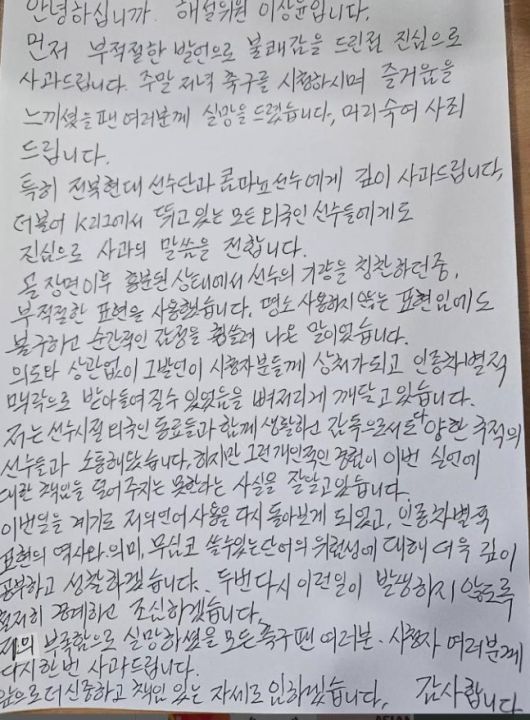 안녕하십니까. 해설위원 이상윤입니다.
먼저 부적절한 발언으로 불쾌감을 드린점 진심으로
사과드립니다. 주말 저녁 축구를 시청하시며 즐거움을
느끼셨을 팬 여러분께 실망을 드렸습니다, 머리숙여 사죄
드립니다.
특히 전북현대 선수단과 콤파뇨선수에게 깊이 사과드립니다,
더불어 K리그에서 뛰고있는 모든 외국인 선수들에게도
진심으로 사과의 말씀을 전합니다.
골 장면이후 흥분된 상태에서 선수의 기량을 칭찬하던중,
부적절한 표현을 사용했습니다. 평소 사용하지 않는 표현임에도
불구하고 순간적인 감정을 휩쓸려 나온 말이었습니다.
의도와 상관없이 그발언이 시청자분들께 상처가되고 인종차별적
맥락으로 받아들여질수 있었음을 뼈저리게 깨닫고 있습니다.
저는 선수시절 외국인 동료들과 함께 생활하고 감독으로서도 다양한 국적의
선수들과 소통해왔습니다, 하지만 그런개인적인 경험이 이번 실언에
대한 책임을 덜어 주지는 못한다는 사실을 잘알고있습니다.
이번일을 계기로 저의언어 사용을 다시 돌아보게 되었고, 인종차별적
표현의 역사와 의미, 무심코 쓸수있는단어의 위험성에 대해 더욱 깊이
공부하고 성찰하겠습니다. 두번다시 이런일이 발생하지 않도록
철저히 경계하고 조심하겠습니다.
저의 부족함으로 실망하셨을 모든축구팬 여러분. 시청자 여러분께
다시한번 사과드립니다.
앞으로 더 신중하고 책임 있는 자세로 임하겠습니다, 감사합니다